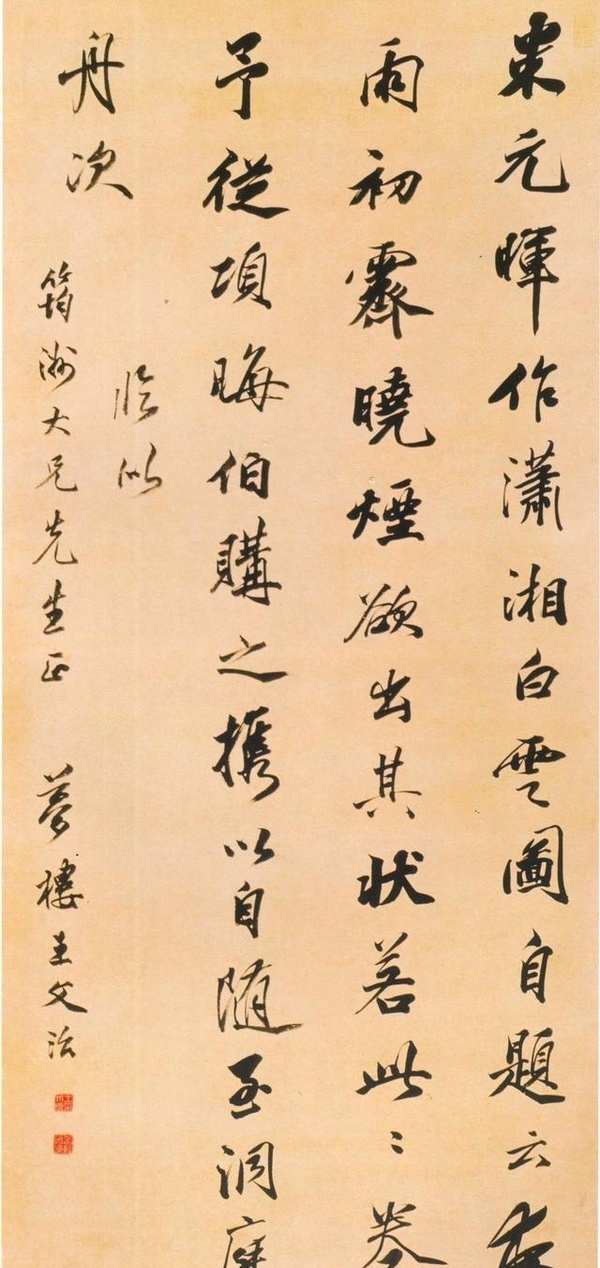 米元暉作瀟湘白雲圖自題云夜
雨初霽曉煙欲出其狀若此〻卷
予從項晦伯購之攜以自隨至洞庭
舟次
臨似
筠洲大兄先生正 夢樓王文治